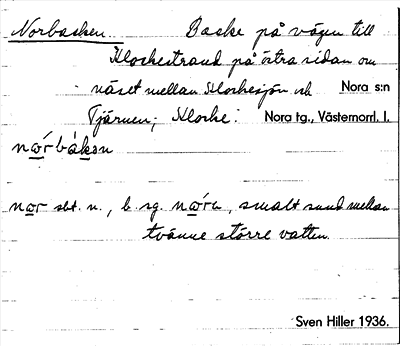 Norbacken. Backe på vägen till
Klockestrand på östra sidan om
näset mellan Klockesjön och Nora s:n
Tjärnen; Klocke. Nora tg., Västernorrl. l.
nơrbákən
nơr sbt. n., b. sg. nớra, smalt sund mellan
tvänne större vatten.
Sven Hiller 1936.